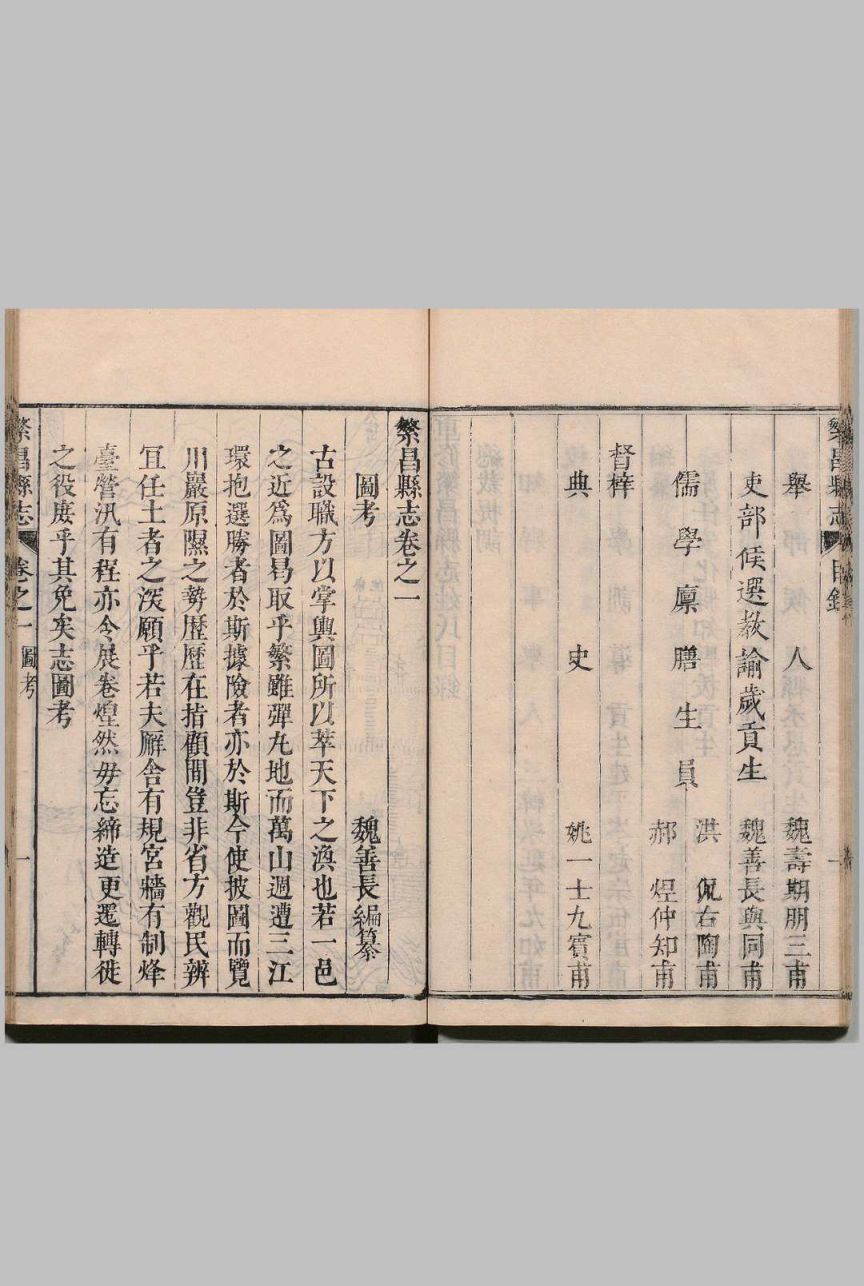 繁昌縣志 目錄
舉人 魏壽期朋三甫
吏部候選教諭歲貢生 魏善長與同甫
洪 侃右陶甫
儒學廩膳生員
郝 煜仲知甫
督梓
典史 姚一士九賓甫
繁昌縣志卷之一
圖考 魏善長編纂
古設職方以掌輿圖所以萃天下之渙也若一邑
之近爲圖曷取乎繁雖彈丸地而萬山週遭三江
環抱選勝者於斯據險者亦於斯今使披圖而覽
川巖原隰之勢歷歷在指顧間豈非省方觀民辨
冝任土者之深願乎若夫廨舍有規宮牆有制烽
臺營汛有程亦令展卷煌然毋忘締造更遷轉徙
之役庶乎其免矣志圖考
繁昌縣志 卷之一 圖考 一